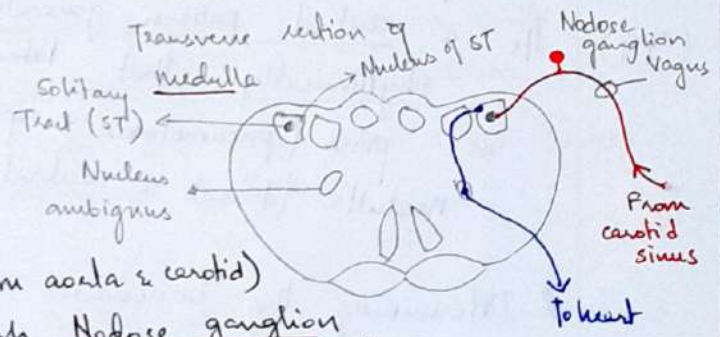 Transverse section of
medulla
Nucleus of ST
Nodose
ganglion
Vagus
Solitary
Tract (ST)
Nucleus
ambignus
From
carotid
sinus
To heart
aorta & carotid)
Nodose ganglion